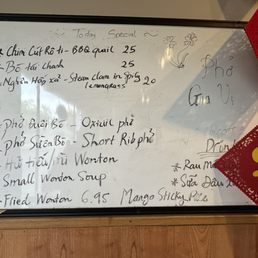 Today Special
* Chim Cút Rô ti - BBQ quail 25
* Bê tái chanh 25
* Nghêu Hấp xả - Steam clam in spicy 20
lemongrass
Phở
Gia Vị
* Phở Đuôi Bò - Oxtail phở
* Phở Sườn Bò - Short Rib phở
* Hủ tiếu/mì Wonton
Small Wonton Soup
* Fried Wonton 6.95 Mango Sticky Rice
Drink
* Rau Má
* Sữa Đậu